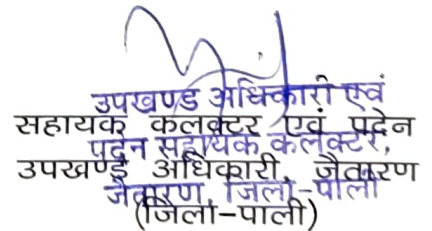 उपखण्ड अधिकारी एवं
सहायक कलक्टर एवं पदेन
पदेन सहायक कलक्टर,
उपखण्ड अधिकारी, जैतारण
जैतारण, जिला-पाली
(जिला-पाली)